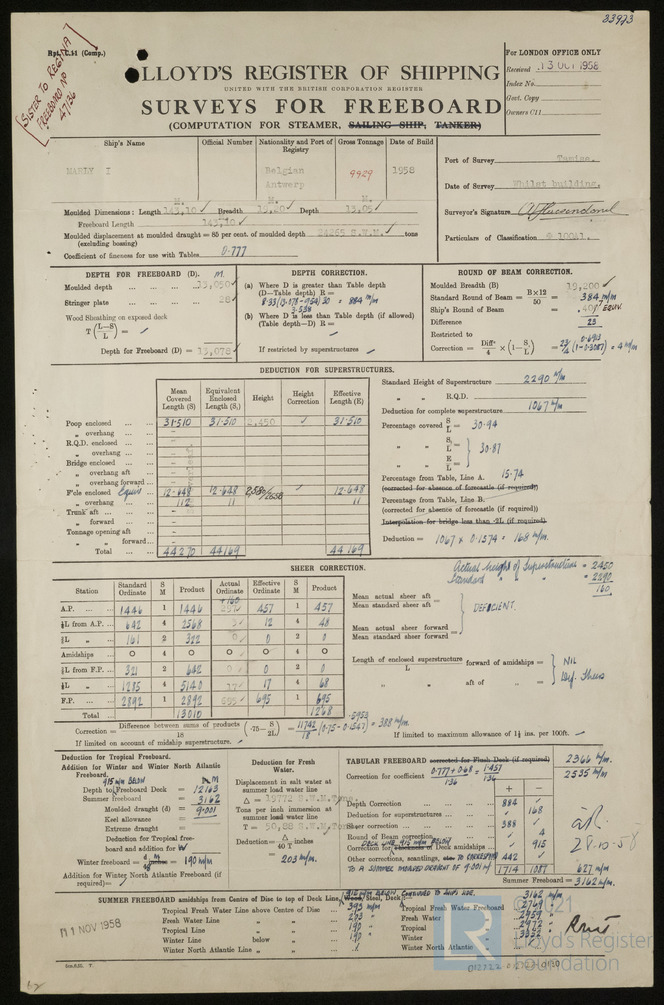 33973
Rpt. C.11 (Comp.)
SISTER TO REGINA
FREEBOARD RP
47/36
LLOYD'S REGISTER OF SHIPPING
UNITED WITH THE BRITISH CORPORATION REGISTER
SURVEYS FOR FREEBOARD
(COMPUTATION FOR STEAMER, SAILING SHIP, TANKER)
For LONDON OFFICE ONLY
Received 13 OCT 1958
Index No.
Govt. Copy
Owners C11
Ship's Name
Official Number
Nationality and Port of Registry
Gross Tonnage
Date of Build
MARLY I
Belgian
Antwerp
9929
1958
Port of Survey Tamise.
Date of Survey Whilst building.
Surveyor's Signature
Particulars of Classification 100A1.
Moulded Dimensions: Length 143,10 Breadth 19,20 Depth 13,05
Freeboard Length 143,10
Moulded displacement at moulded draught = 85 per cent. of moulded depth 24265 S.W.M. tons
(excluding bossing)
Coefficient of fineness for use with Tables 0.777
DEPTH FOR FREEBOARD (D). M
Moulded depth 13,050
Stringer plate 28
Wood Sheathing on exposed deck
T (L−S / L) =
Depth for Freeboard (D) = 13,078
DEPTH CORRECTION.
(a) Where D is greater than Table depth
(D—Table depth) R =
8.33(13.078-9.540)30 = 884 m/m
3.538
(b) Where D is less than Table depth (if allowed)
(Table depth—D) R =
If restricted by superstructures
ROUND OF BEAM CORRECTION.
Moulded Breadth (B) 19,200
Standard Round of Beam = B×12 / 50 = 384 m/m
Ship's Round of Beam = .407 EQUIV.
Difference 23
Restricted to
Correction = Diff. / 4 × (1 − S1 / L) = 23/4 (1-0.3087) = 4 m/m
0.6913
DEDUCTION FOR SUPERSTRUCTURES.
Mean Covered Length (S)
Equivalent Enclosed Length (S1)
Height
Height Correction
Effective Length (E)
Poop enclosed 31.510 31.510 2,450 31.510
„ overhang
R.Q.D. enclosed
„ overhang
Bridge enclosed
„ overhang aft
„ overhang forward
F'cle enclosed Equiv 12.648 12.648 2,580/2658 12.648
„ overhang 112 11 11
Trunk aft
„ forward
Tonnage opening aft
„ „ forward
Total 44270 44169 44169
Standard Height of Superstructure 2290 m/m
„ „ R.Q.D.
Deduction for complete superstructure 1067 m/m
Percentage covered S / L = 30.94
„ „ S1 / L =
„ „ E / L = 30.87
Percentage from Table, Line A. 15.74
(corrected for absence of forecastle (if required))
Percentage from Table, Line B.
(corrected for absence of forecastle (if required))
Interpolation for bridge less than ·2L (if required)
Deduction = 1067 x 0.1574 = 168 m/m.
SHEER CORRECTION.
Actual height of Superstructure = 2450
Standard „ of „ = 2290
160
Station
Standard Ordinate
S M
Product
Actual Ordinate
Effective Ordinate
S M
Product
A.P. 1446 1 1446 +160 457 1 457
⅙L from A.P. 642 4 2568 12 4 48
⅓L „ 161 2 322 0 0 2 0
Amidships 0 4 0 0 0 4 0
⅓L from F.P. 321 2 642 0 0 2 0
⅙L „ 1285 4 5140 17 17 4 68
F.P. 2892 1 2892 695 695 1 695
Total 13010 1268
Mean actual sheer aft
Mean standard sheer aft =
Mean actual sheer forward
Mean standard sheer forward =
DEFICIENT
Length of enclosed superstructure / L forward of amidships =
„ „ aft of „ =
NIL
Correction = Difference between sums of products / 18 (·75 − S / 2L) = 11742 / 18 (0.75-0.1547) = 388 m/m.
.5953
If limited on account of midship superstructure.
If limited to maximum allowance of 1½ ins. per 100ft.
Deduction for Tropical Freeboard.
Addition for Winter and Winter North Atlantic Freeboard.
915 m/m BELOW M
Depth to Freeboard Deck = 12163
Summer freeboard = 3162
Moulded draught (d) = 9.001
Keel allowance =
Extreme draught =
Deduction for Tropical freeboard and addition for W
Winter freeboard = = 190 m/m
Addition for Winter North Atlantic Freeboard (if required) =
Deduction for Fresh Water.
Displacement in salt water at summer load water line
Δ = 19772 S.W.M.Tons.
Tons per inch immersion at summer load water line
T = 50,88 S.W.M.Tons
Deduction = Δ / 40 T inches
= 203 m/m.
TABULAR FREEBOARD corrected for Flush Deck (if required) 2366 m/m
Correction for coefficient 0.777+0.68 / 1.36 = 1.457 / 1.36 2535 m/m
+ −
Depth Correction 884
Deduction for superstructures 168
Sheer correction 388
Round of Beam correction 4
DECK LINE 915 m/m BELOW
Correction for Thickness of Deck amidships 915
Other corrections, scantlings, etc. TO CORRESPOND 442
TO A SUMMER MOULDED DRAUGHT OF 9.001 M 1714 1087 627 m/m
Summer Freeboard = 3162 m/m.
28-10-58
SUMMER FREEBOARD amidships from Centre of Disc to top of Deck Line, Wood, Steel, Deck:—
3162 m/m
Tropical Fresh Water Line above Centre of Disc 393 m/m Tropical Fresh Water Freeboard 2769 „
Fresh Water Line „ „ 203 „ Fresh Water „ 2959 „
Tropical Line „ „ 190 „ Tropical „ 2972 „
Winter Line below „ 190 „ Winter „ 3352 „
Winter North Atlantic Line „ „ Winter North Atlantic „
11 NOV 1958
© 2021
Lloyd's Register
Foundation
LR